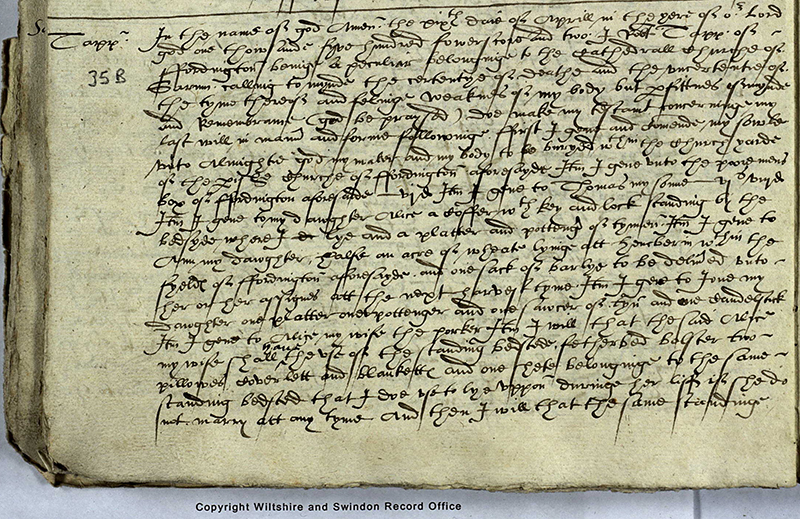 Tapp
35B
In the name of god Amen the sixth daie of Aprill in the yere of or Lord
god one thowsande fyve hundred fowerscore and two I Robt Tapp of
Fordington beinge a peculiar belonginge to the Cathedrall Churche of
Sarum calling to mynde the certentye of deathe and the uncertentie of
the tyme thereof and felinge weaknes of my body but pfittnes of mynde
and Remembrance (god be praysed) doe make my testamt concerninge my
last will in manr and forme followinge First I geve and comende my sowle
unto Almightie god my maker and my body to be buryed wthin the Church yarde
of the pishe Churche of Fordington aforesayde Itm I geve unto the pooremens
box of Fordington aforesaide vjd Itm I geve to Thomas my sonne vjs viijd
Itm I geve to my daughter Alice a Coffer wth key and lock standing by the
bedsyde where I do lye and a platter and pottenger of tynne Itm I geve to
Ann my daughter, halfe an acre of wheate lyinge att wthin the
fyeldes of Fordington aforesayde and one sack of barlye to be delivd unto
her or her assignes att the next harvest tyme Itm I geve to Jone my
daughter one platter one pottenger and one sawcer of tyn and one Candelstick
Itm I geve to Alice my wife the porker Itm I will that the said Alice
my wife shall have the use of the standing bedsted, fetherbed bolster two
pillowes Coverlett and blankett and one shete belonginge to the same
standing bedsted that I doe use to lye uppon duringe her life if she do
not marry att any tyme And then I will that the same standinge
Copyright Wiltshire and Swindon Record Office